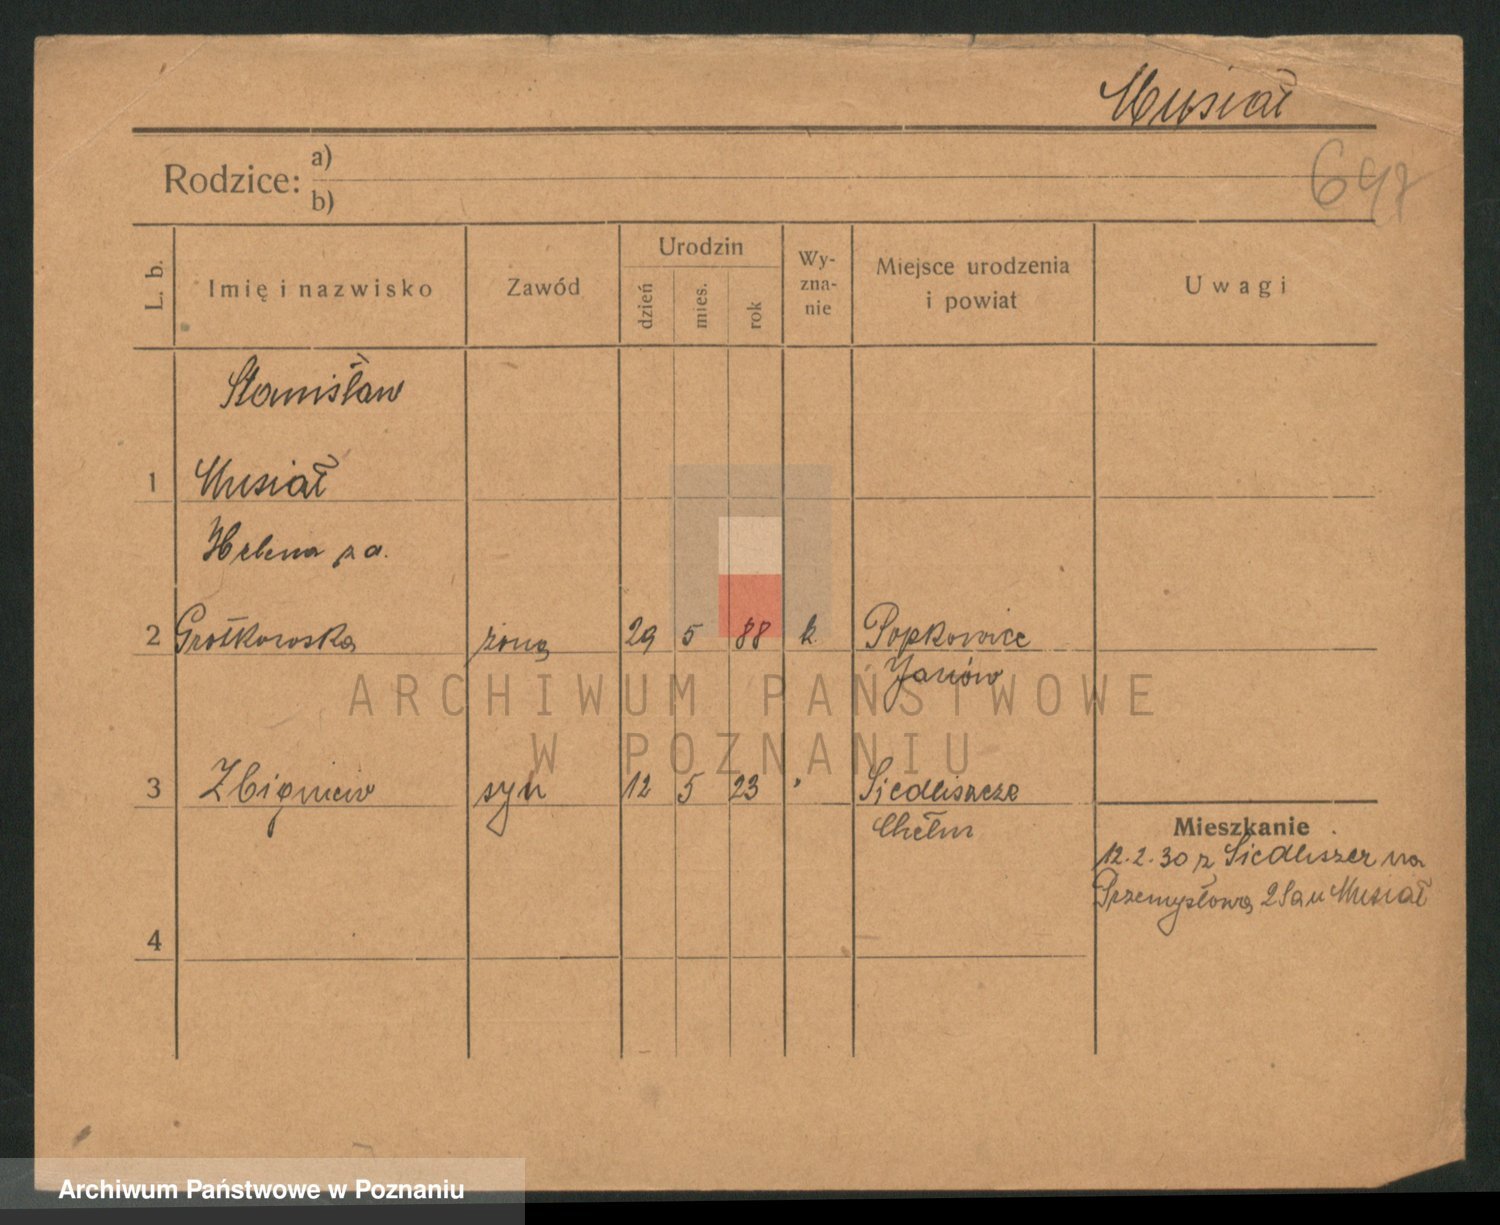 Musiał
Rodzice: a)
b)
698
L. b.
Imię i nazwisko
Zawód
Urodzin
dzień
mies.
rok
Wy-
zna-
nie
Miejsce urodzenia
i powiat
Uwagi
Stanisław
1 Musiał
Helena z d.
2 Grotkowska żona 29 5 88 k. Popkowice
Janów
ARCHIWUM PAŃSTWOWE
W POZNANIU
3 Zbigniew syn 12 5 23 " Siedliszcze
Chełm
Mieszkanie
12.2.30 z Siedliszcz na
Przemysłową u Musiał
4
Archiwum Państwowe w Poznaniu